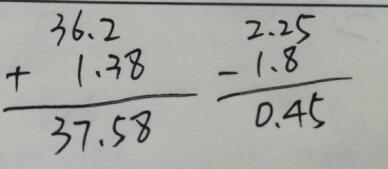 36.2 2.25
+ 1.38 - 1.8
37.58 0.45